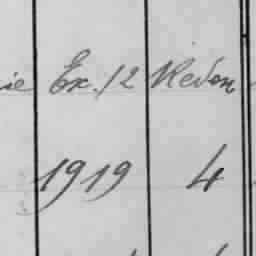 ie Ex. 12 Reden
1919 4